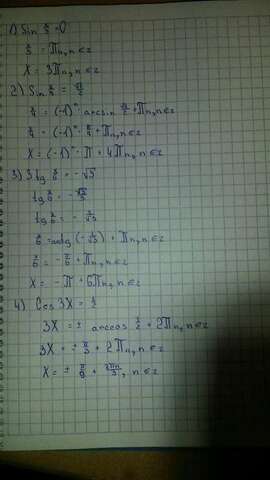 1) Sin x/3 = 0
x/3 = πn, n ∈ z
X = 3πn, n ∈ z
2) Sin x/4 = √2/2
x/4 = (-1)^n · arcsin √2/2 + πn, n ∈ z
x/4 = (-1)^n · π/4 + πn, n ∈ z
X = (-1)^n · π + 4πn, n ∈ z
3) 3tg x/6 = -√3
tg x/6 = -√3/3
tg x/6 = - 1/√3
x/6 = arctg (-1/√3) + πn, n ∈ z
x/6 = - π/6 + πn, n ∈ z
X = - π + 6πn, n ∈ z
4) Cos 3X = 1/2
3X = ± arccos 1/2 + 2πn, n ∈ z
3X = ± π/3 + 2πn, n ∈ z
X = ± π/9 + 2πn/3, n ∈ z